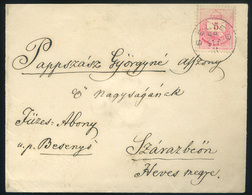 Pappszász Györgyné asszony
Ő Nagyságának
Füzes-Abony
u.p. Besenyő
Szarazbeőn
Heves megye.